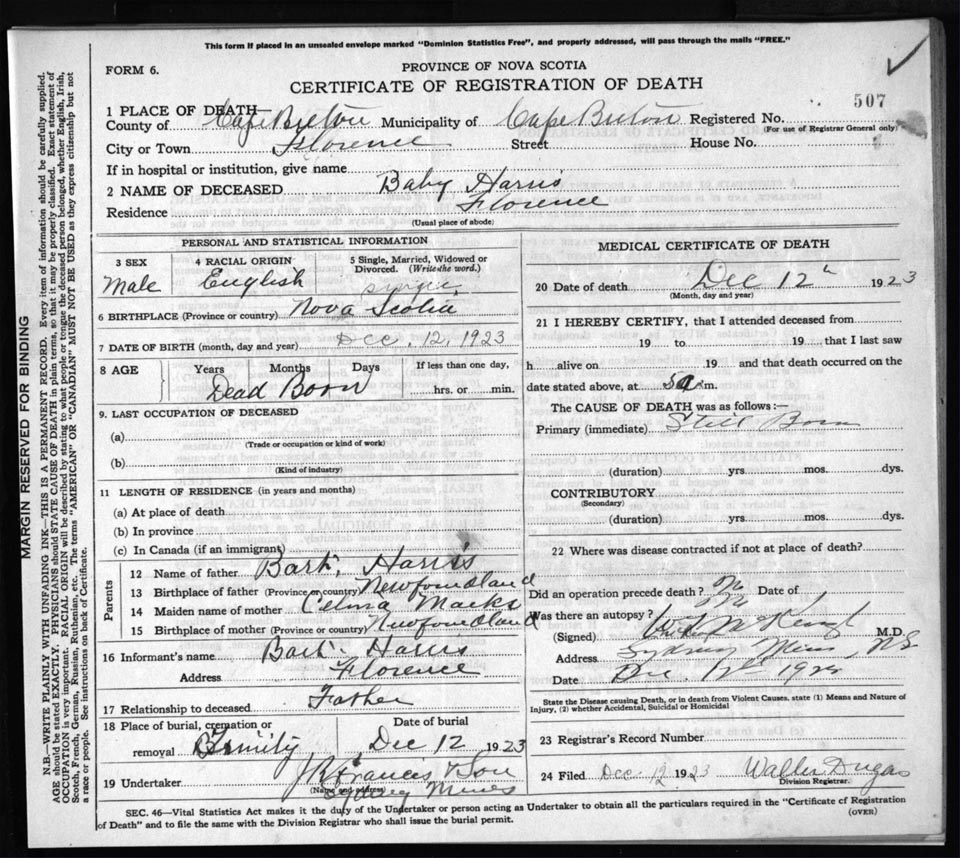 This form if placed in an unsealed envelope marked "Dominion Statistics Free", and properly addressed, will pass through the mails "FREE."
FORM 6.
PROVINCE OF NOVA SCOTIA
CERTIFICATE OF REGISTRATION OF DEATH
507
1 PLACE OF DEATH—
County of Cape Breton Municipality of Cape Breton Registered No.
(For use of Registrar General only)
City or Town Florence Street House No.
If in hospital or institution, give name
2 NAME OF DECEASED Baby Harris
Residence Florence
(Usual place of abode)
PERSONAL AND STATISTICAL INFORMATION
3 SEX 4 RACIAL ORIGIN 5 Single, Married, Widowed or Divorced. (Write the word.)
Male English single
6 BIRTHPLACE (Province or country) Nova Scotia
7 DATE OF BIRTH (month, day and year) Dec. 12, 1923
8 AGE Years Months Days If less than one day,
Dead Born hrs. or min.
9. LAST OCCUPATION OF DECEASED
(a)
(Trade or occupation or kind of work)
(b)
(Kind of industry)
11 LENGTH OF RESIDENCE (in years and months)
(a) At place of death
(b) In province
(c) In Canada (if an immigrant)
Parents
12 Name of father Bart. Harris
13 Birthplace of father (Province or country) Newfoundland
14 Maiden name of mother Celma Marks
15 Birthplace of mother (Province or country) Newfoundland
16 Informant's name Bart Harris
Address Florence
17 Relationship to deceased Father
18 Place of burial, cremation or removal Trinity Date of burial Dec 12 1923
19 Undertaker J R Francis & Son
(Name and address) Sydney Mines
MEDICAL CERTIFICATE OF DEATH
20 Date of death Dec 12 1923
(Month, day and year)
21 I HEREBY CERTIFY, that I attended deceased from
19 to 19 that I last saw
h alive on 19 and that death occurred on the
date stated above, at 5 a m.
The CAUSE OF DEATH was as follows:—
Primary (immediate) Still Born
(duration) yrs. mos. dys.
CONTRIBUTORY
(Secondary)
(duration) yrs. mos. dys.
22 Where was disease contracted if not at place of death?
Did an operation precede death? No Date of
Was there an autopsy? No
(Signed) M.D.
Address Sydney Mines, NS
Date Dec. 12th 192
State the Disease causing Death, or in death from Violent Causes, state (1) Means and Nature of Injury, (2) whether Accidental, Suicidal or Homicidal
23 Registrar's Record Number
24 Filed Dec 1923 Walter Dugas
Division Registrar.
SEC. 46—Vital Statistics Act makes it the duty of the Undertaker or person acting as Undertaker to obtain all the particulars required in the "Certificate of Registration
of Death" and to file the same with the Division Registrar who shall issue the burial permit.
(OVER)
MARGIN RESERVED FOR BINDING
N.B.—WRITE PLAINLY WITH UNFADING INK—THIS IS A PERMANENT RECORD. Every item of information should be carefully supplied.
AGE should be stated EXACTLY. PHYSICIANS should STATE CAUSE OF DEATH in plain terms, so that it may be properly classified. Exact statement of
OCCUPATION is very important. RACIAL ORIGIN will be described by stating to what people or tongue the deceased person belonged, whether English, Irish,
Scotch, French, German, Russian, Ruthenian, etc. The terms "AMERICAN" OR "CANADIAN" MUST NOT BE USED as they express citizenship but not
a race or people. See instructions on back of Certificate.